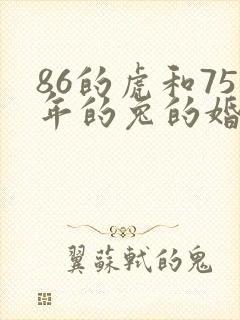 86的虎和75
年的兔的婚
翼蘇軾的鬼